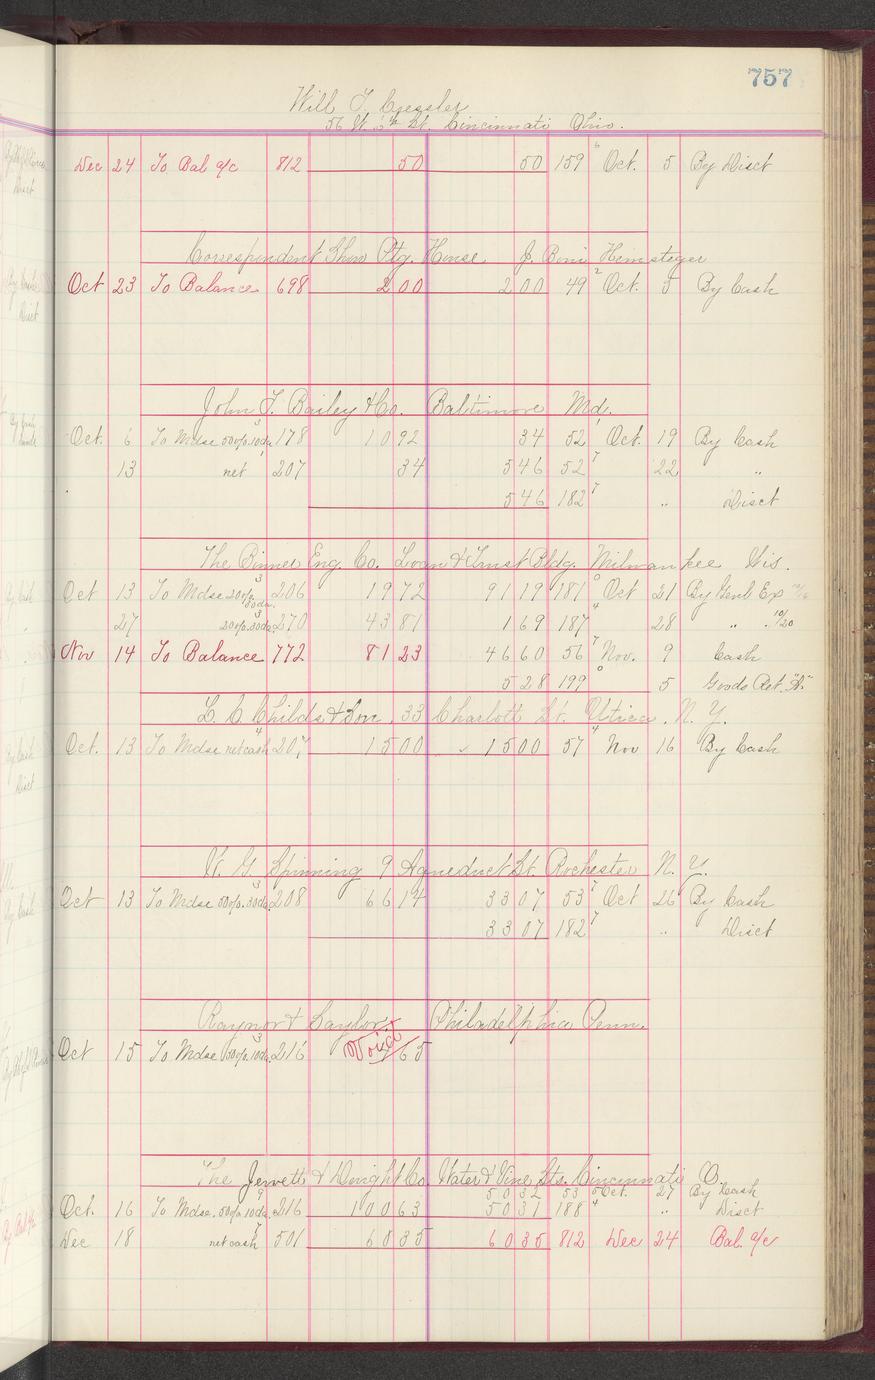 757
Will T.
56 W. 6th St. Cincinnati Ohio.
Dec 24 To Bal a/c 812 50 50 159 6 Oct. 5 By Disct
Correspondent Show Ptg. House J. Boni
Oct 23 To Balance 698 2 00 2 00 49 2 Oct. 5 By Cash
John T. Bailey & Co. Baltimore Md.
Oct. 6 To Mdse 50% 10da 3 178 10 92 34 52 1 Oct. 19 By Cash
13 net 1 207 34 5 46 52 7 22 "
5 46 182 7 " Disct
The Binner Eng. Co. Loan & Trust Bldg. Milwaukee Wis.
Oct 13 To Mdse 20% 30da. 3 206 19 72 91 19 181 0 Oct 21 By Genl Exp
27 20% 30da. 3 270 43 81 1 69 187 4 28 " " 10/20
Nov 14 To Balance 772 81 23 46 60 56 7 Nov. 9 Cash
5 28 199 0 5 Goods Ret. "A"
L. C. Childs & Son, 33 Charlott St. Utica, N. Y.
Oct. 13 To Mdse net cash 4 207 15 00 ✓ 15 00 57 4 Nov 16 By Cash
W. G. Spinning 9 Aqueduct St. Rochester N. Y.
Oct 13 To Mdse 50% 30da. 3 208 66 14 33 07 53 7 Oct 26 By Cash
33 07 182 7 " Disct
Raynor & Philadelphia Penn.
Oct 15 To Mdse 50% 10da. 3 216 Void 65
The Jewett & Dwight Co. Water & Vine Sts. Cincinnati O.
50 32 53 5 Oct. 27 By Cash
Oct. 16 To Mdse. 50% 10da. 9 216 100 63 50 31 188 4 " Disct
Dec 18 net cash 7 501 60 35 60 35 812 Dec 24 Bal. a/c